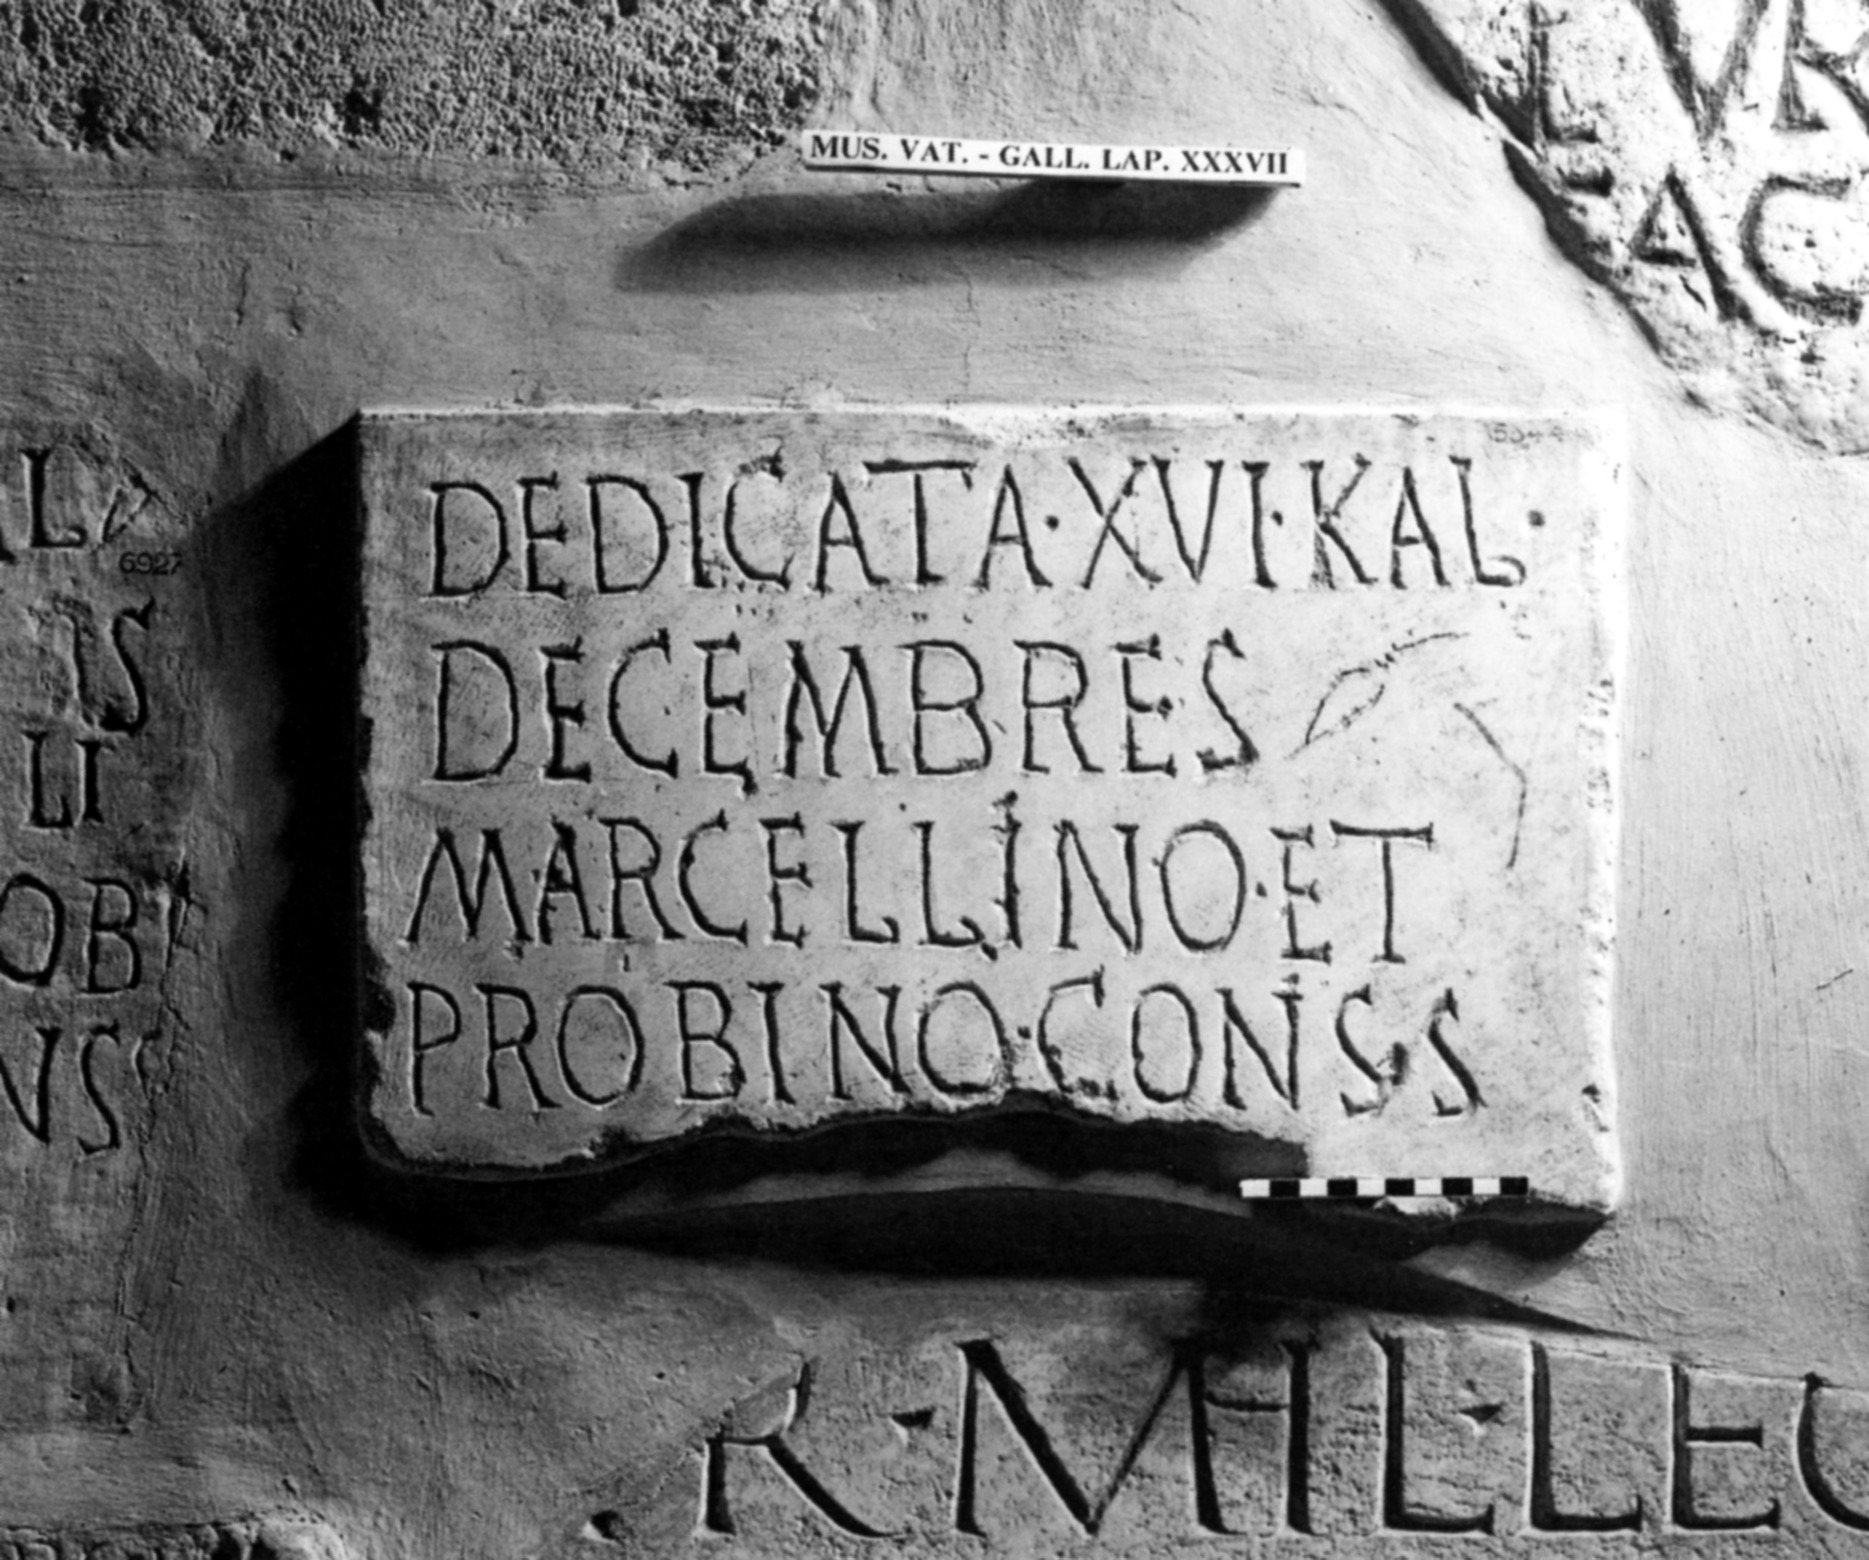 MUS. VAT. - GALL. LAP. XXXVII
DEDICATA·XVI·KAL·
DECEMBRES
MARCELLINO·ET
PROBINO·CONSS
6927
TS
LI
OB
NS
AC
R·MIL·LEG